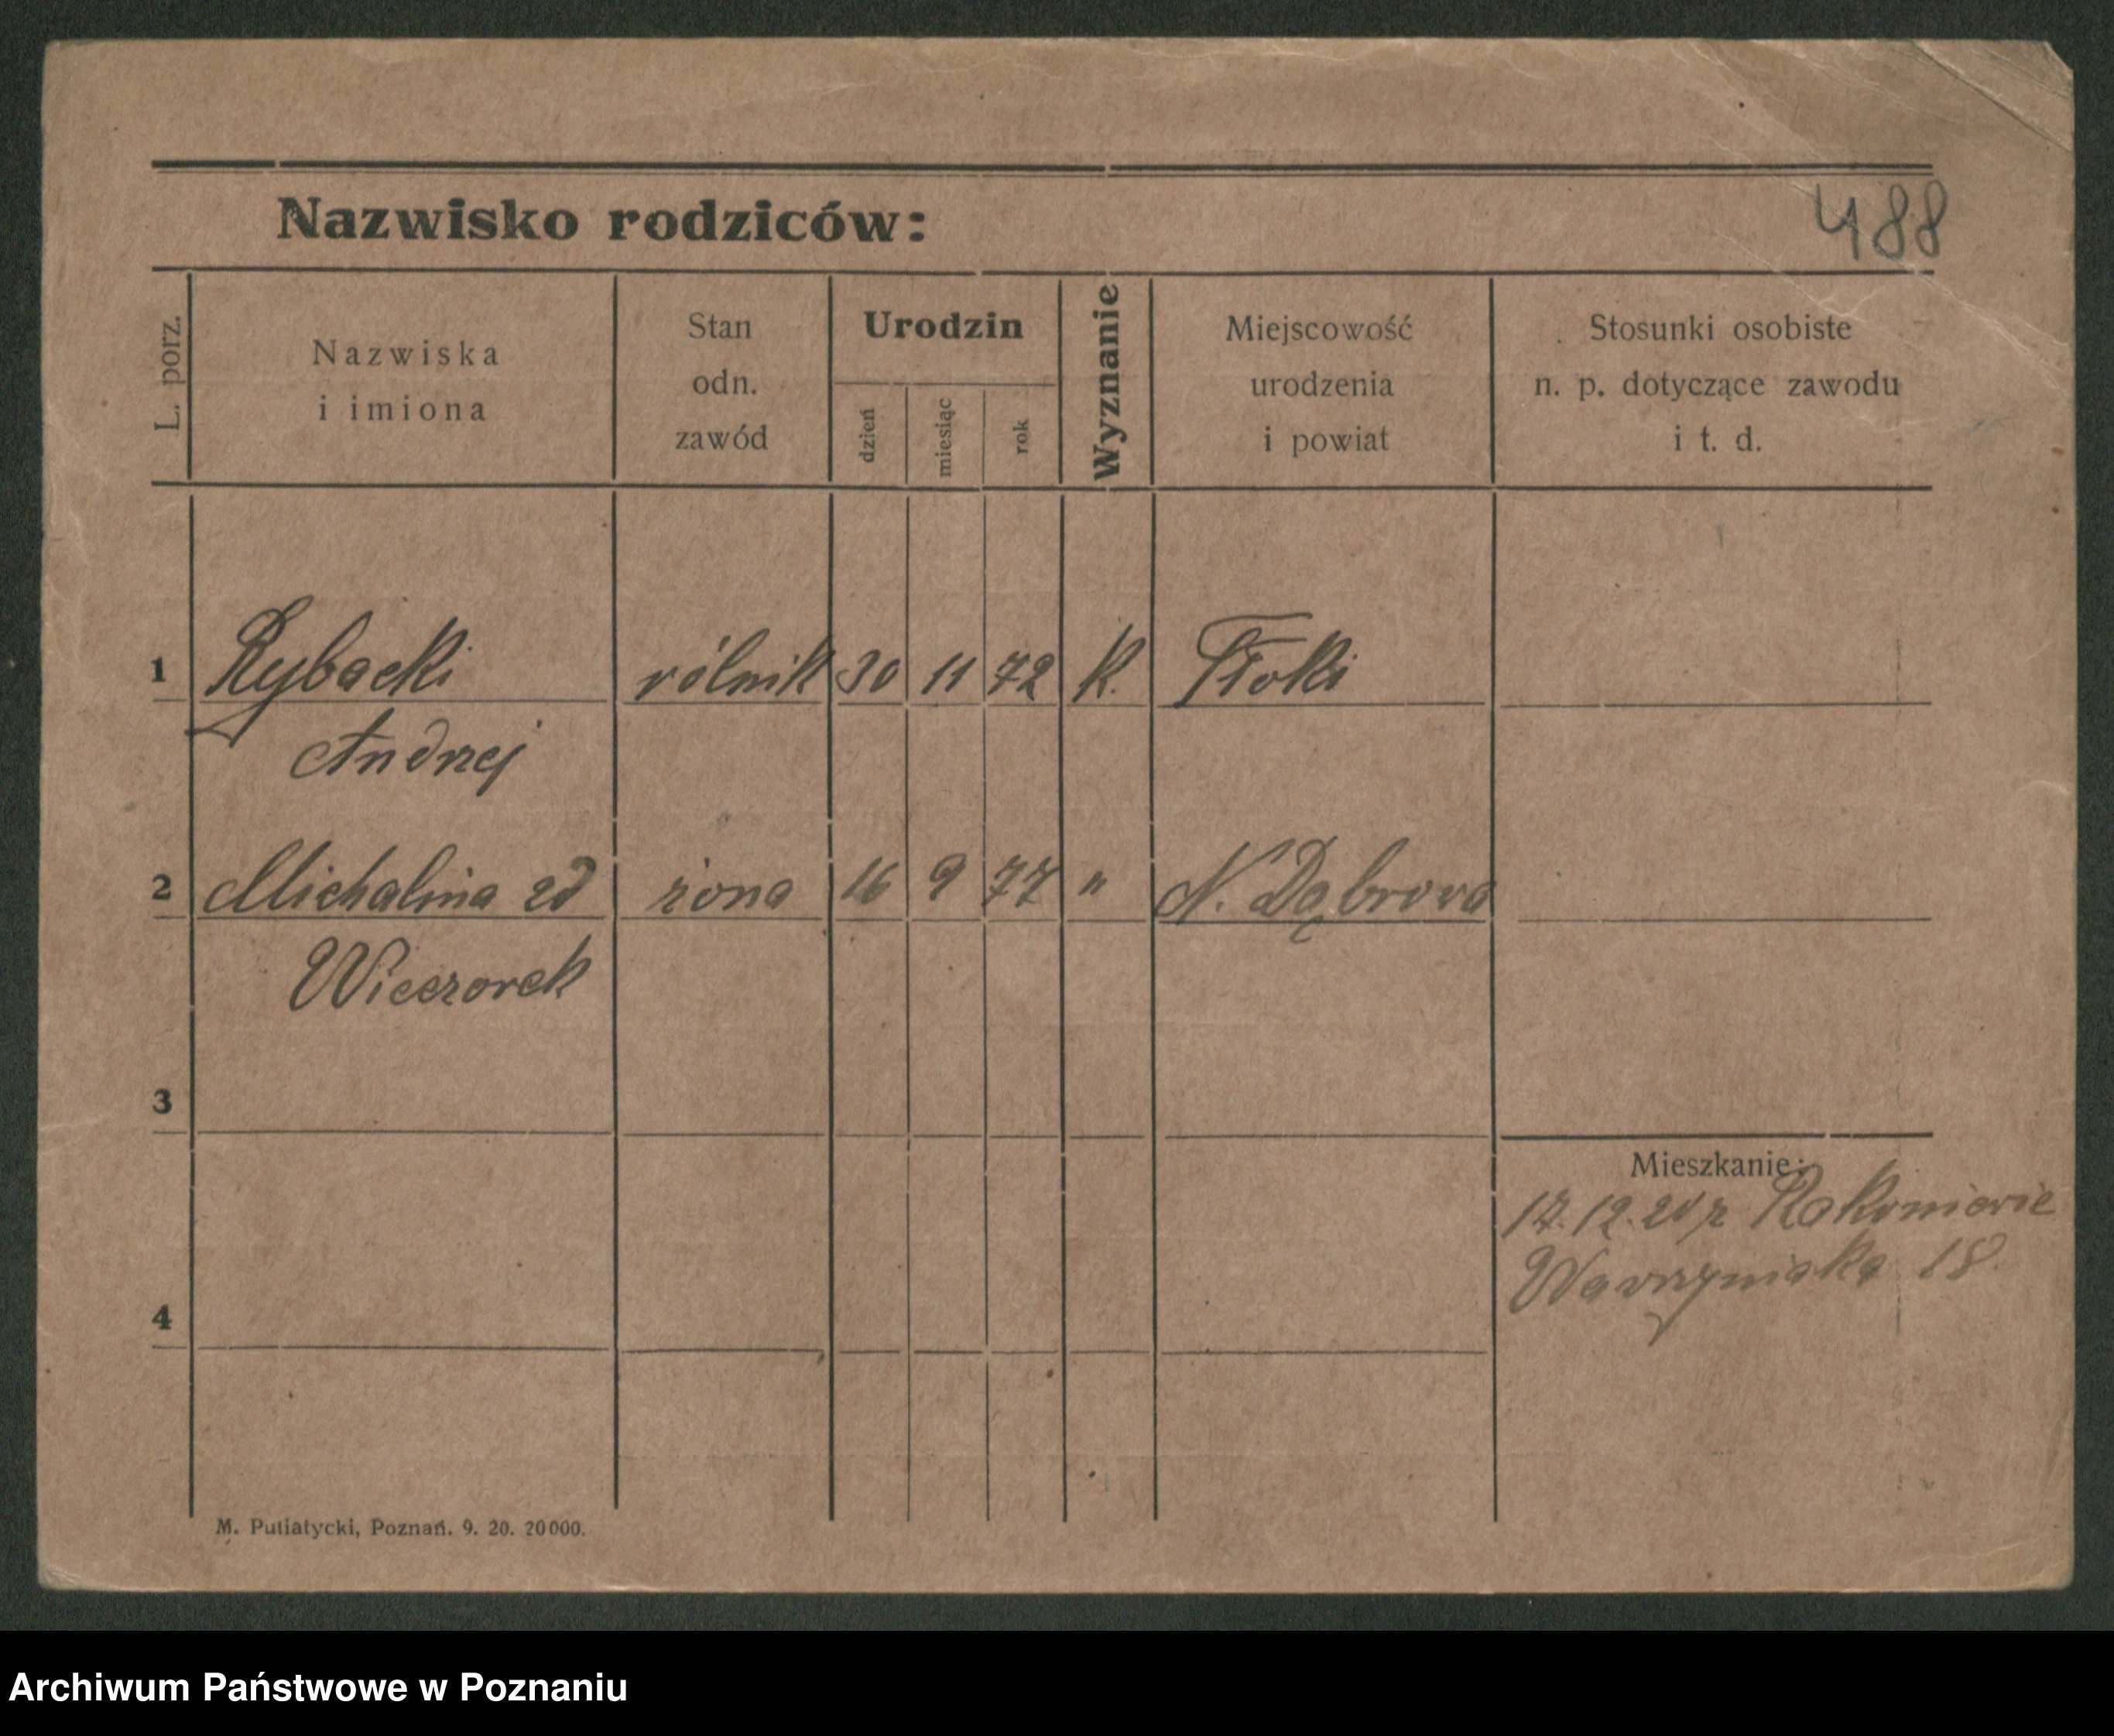 Nazwisko rodziców:
488
L. porz.
Nazwiska
i imiona
Stan
odn.
zawód
Urodzin
dzień
miesiąc
rok
Wyznanie
Miejscowość
urodzenia
i powiat
Stosunki osobiste
n. p. dotyczące zawodu
i t. d.
1 Rybacki rólnik 30 11 72 K. Tłoki
Andrzej
2 Michalina zd żona 16 9 77 " N. Dąbrowa
Wieczorek
3
Mieszkanie:
17. 12. Rakoniewice
Wawrzyniaka 18.
4
M. Putiatycki, Poznań. 9. 20. 20000.
Archiwum Państwowe w Poznaniu